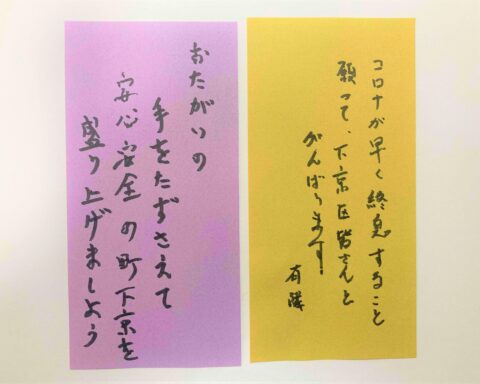 コロナが早く終息すること
願って、下京区皆さんと
がんばります!
おたがいの
手をたずさえて
安心安全の町下京を
盛り上げましょう